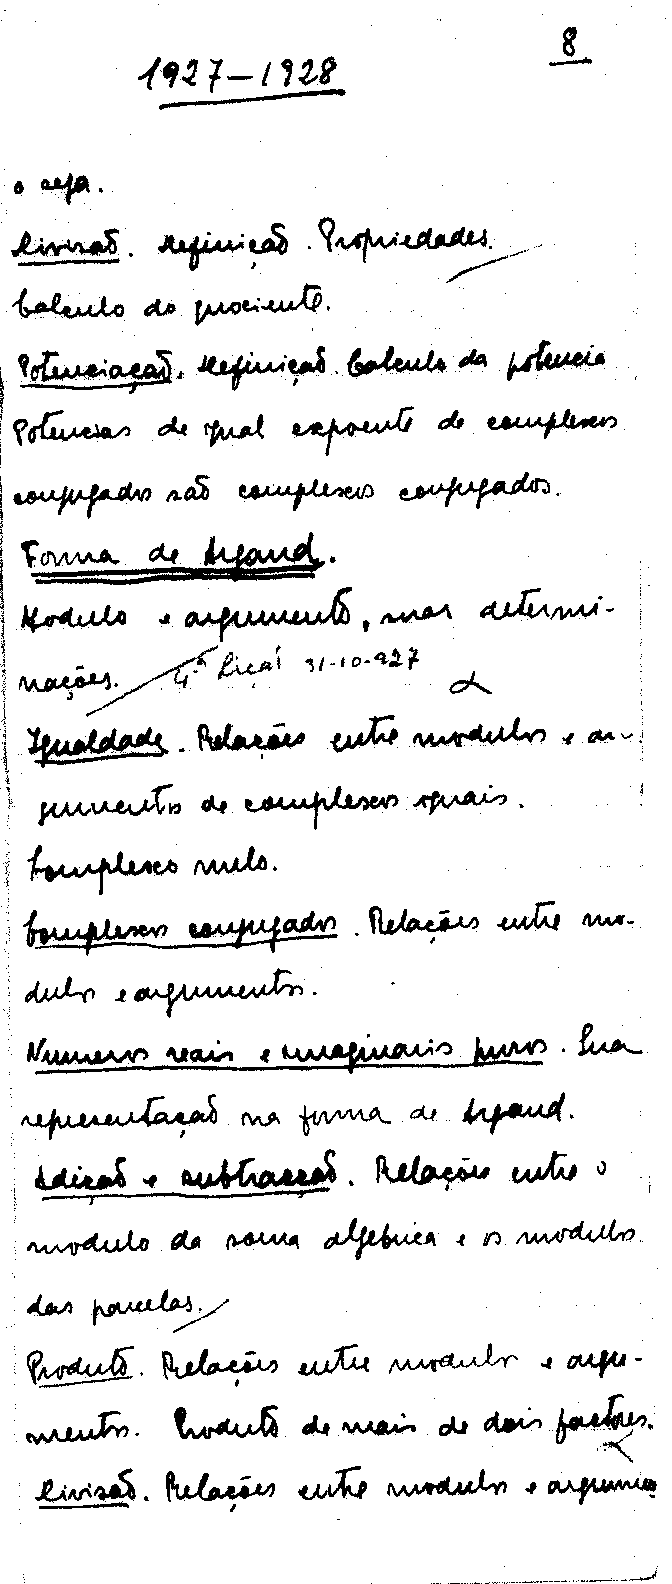 8
1927-1928
o seja.
Divisão. Definição. Propriedades.
Calculo do quociente.
Potenciação. Definição. Calculo da potencia
Potencias de igual expoente de complexos
conjugados são complexos conjugados.
Forma de Argand.
Modulo e argumento, suas determi-
nações. 4ª Lição 31-10-927
Igualdade. Relações entre modulos e ar-
gumentos de complexos iguais.
Complexo nulo.
Complexos conjugados. Relações entre mo-
dulos e argumentos.
Numeros reais e imaginarios puros. Sua
representação na forma de Argand.
Adição e subtracção. Relações entre o
modulo da soma algébrica e os modulos
das parcelas.
Produto. Relações entre modulos e argu-
mentos. Produto de mais de dois factores.
Divisão. Relações entre modulos e argumen